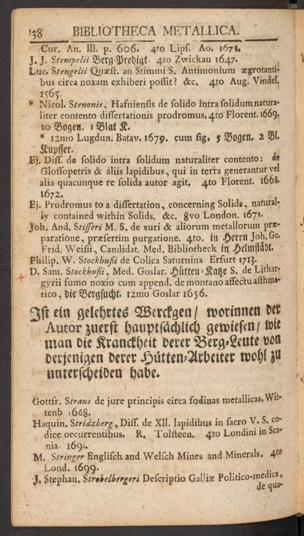 138 BIBLIOTHECA METALLICA.
Cur. An. III. p. 606. 4to Lips. Ao. 1671.
J. J. Stempelii Berg-Predigt. 4to Zwickau 1647.
Luc. Stengelii Quæst. an Stimmi S. Antimonium ægrotanti-
bus circa noxam exhiberi possit? &c. 4to Aug. Vindel.
1565.
* Nicol. Stenonis, Hafniensis de solido intra solidum natura-
liter contento dissertationis prodromus, 4to Florent. 1669.
10 Bogen. 1 Blat K.
* 12mo Lugdun. Batav. 1679. cum fig. 5 Bogen. 2 Bl.
Kupffer.
Ej. Diss. de solido intra solidum naturaliter contento: de
Glossopetris & aliis lapidibus, qui in terra generantur vel
alia quacunque re solida autor agit, 4to Florent. 1668.
1672.
Ej. Prodromus to a dissertation, concerning Solids, natural-
ly contained within Solids, &c. 8vo London. 1671.
Joh. And. Stisseri M. S. de auri & aliorum metallorum præ-
paratione, præsertim purgatione. 4to. in Herrn Joh. Ge.
Frid. Weisii, Candidat. Med. Bibliotheck in Helmstädt.
Philip. W. Stockhusii de Colica Saturnina Erfurt 1713.
D. Sam. Stockhusii, Med. Goslar. Hütten-Katze S. de Lithar-
gyrii fumo noxio cum append. de montano affectu asthma-
tico, die Bergsucht. 12mo Goslar 1656.
Ist ein gelehrtes Werckgen/ worinnen der
Autor zuerst hauptsächlich gewiesen/ wie
man die Kranckheit derer Berg-Leute von
derjenigen derer Hütten-Arbeiter wohl zu
unterscheiden habe.
Gottfr. Straus de jure principis circa fodinas metallicas. Wit-
tenb 1668.
Haquin. Stridzberg, Diss. de XII. lapidibus in sacro V. S. co-
dice occurrentibus. R. Tolsteen. 4to Londini in Sca-
nia.
M. Stringer Englisch and Welsch Mines and Minerals, 4to
Lond. 1699.
J. Stephan. Strobelbergeri Descriptio Galliæ Politico-medica,
de qua-